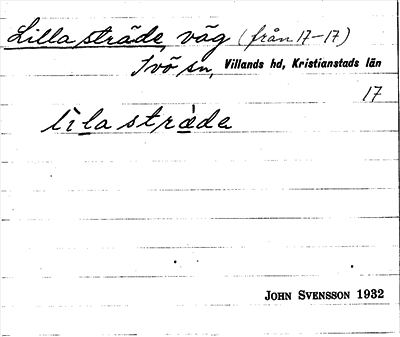 Lilla sträde, väg (från 17-17)
Ivö sn, Villands hd, Kristianstads län
17
lìla stràde
JOHN SVENSSON 1932